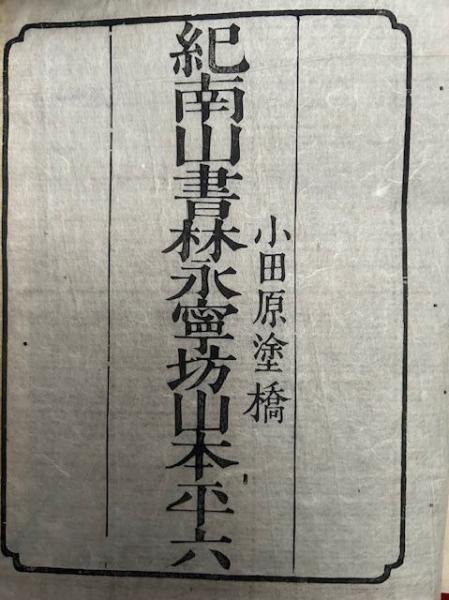 小田原塗橋
紀南山書林永寧坊山本平六